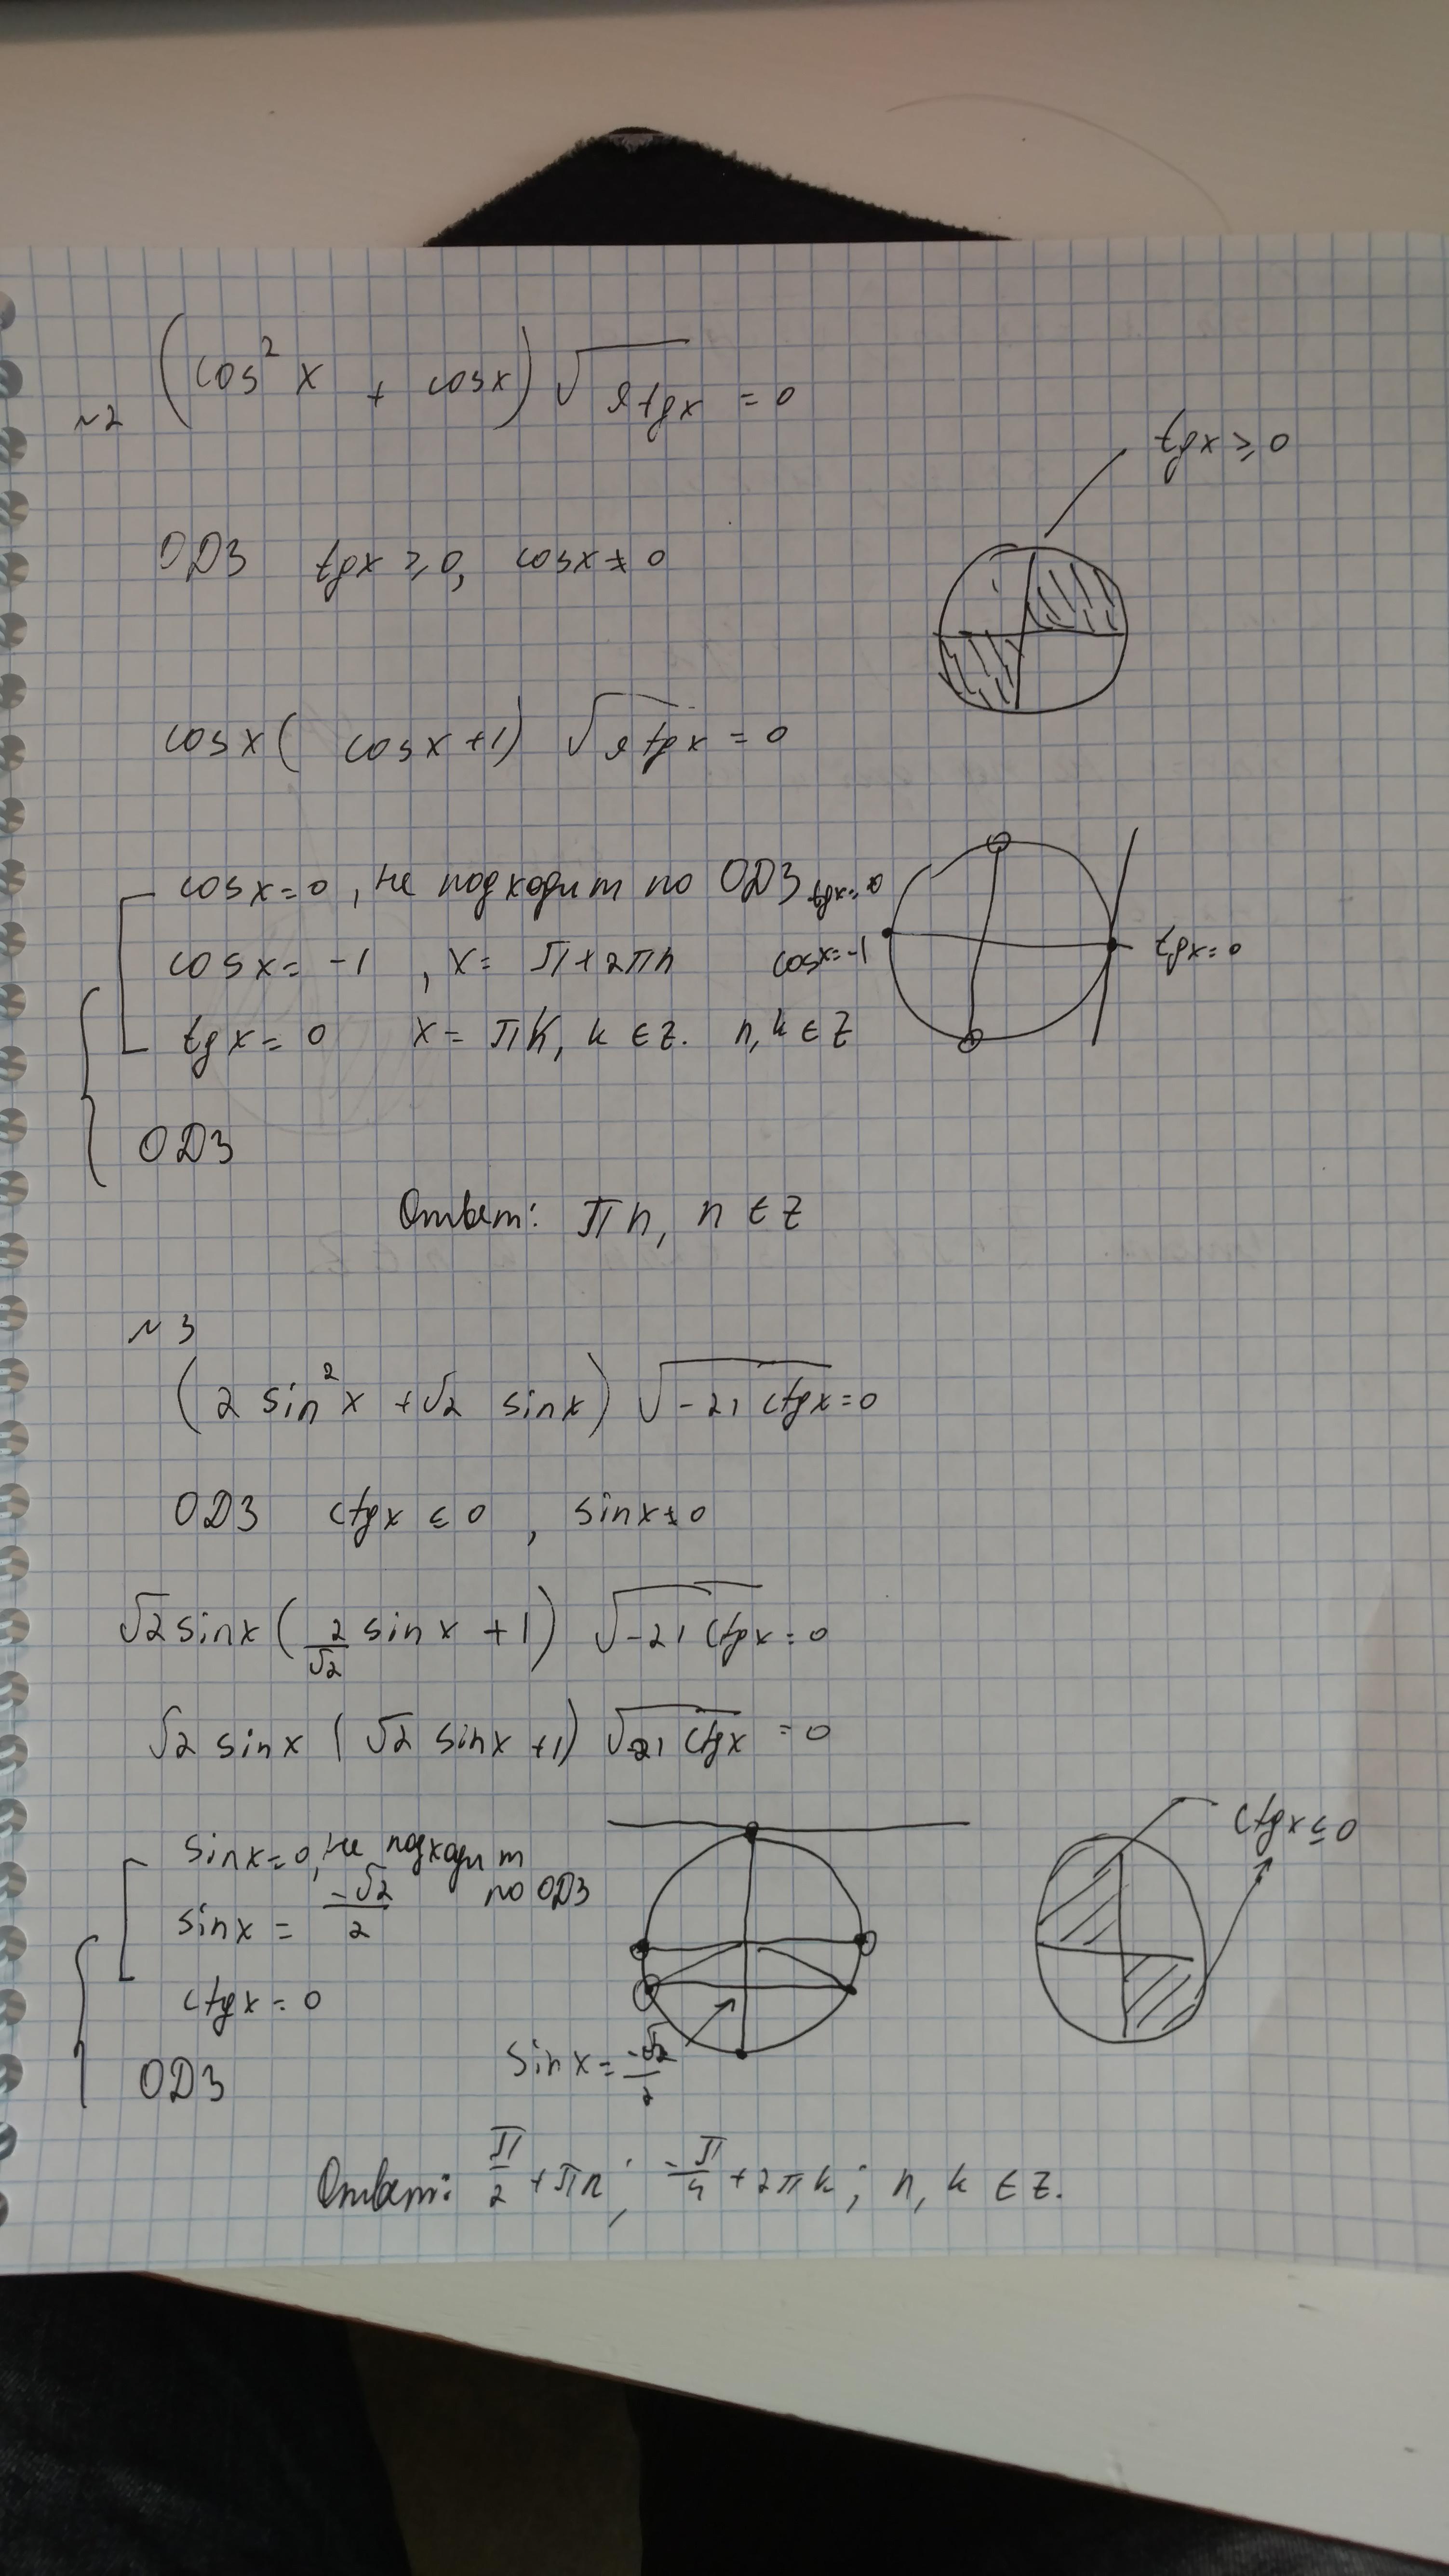 №2 (cos² x + cosx) √(2tgx) = 0
tgx ≥ 0
ОДЗ tgx ≥ 0, cosx ≠ 0
cosx( cosx+1) √(2tgx) = 0
cosx=0, не подходит по ОДЗ
cosx= -1, x= π+2πn
tgx= 0 x= πk, k ∈ Z. n, k ∈ Z
ОДЗ
tgx=0
cosx=-1
tgx=0
Ответ: πn, n ∈ Z
№3
(2 sin²x + √2 sinx) √(-21 ctgx) = 0
ОДЗ ctgx ≤ 0, sinx≠0
√2 sinx ( 2/√2 sinx + 1) √(-21 ctgx) = 0
√2 sinx ( √2 sinx +1) √(-21 ctgx) = 0
sinx=0, не подходит по ОДЗ
sinx = -√2/2
ctgx=0
ОДЗ
sinx = -√2/2
ctgx ≤ 0
Ответ: π/2 + πn; -π/4 + 2πk; n, k ∈ Z.